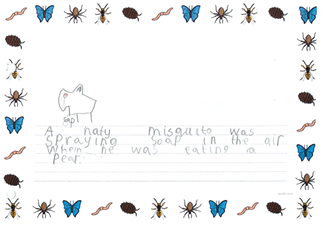 A naty misquito was
spraying soap in the air
When he was eating a
Pear.